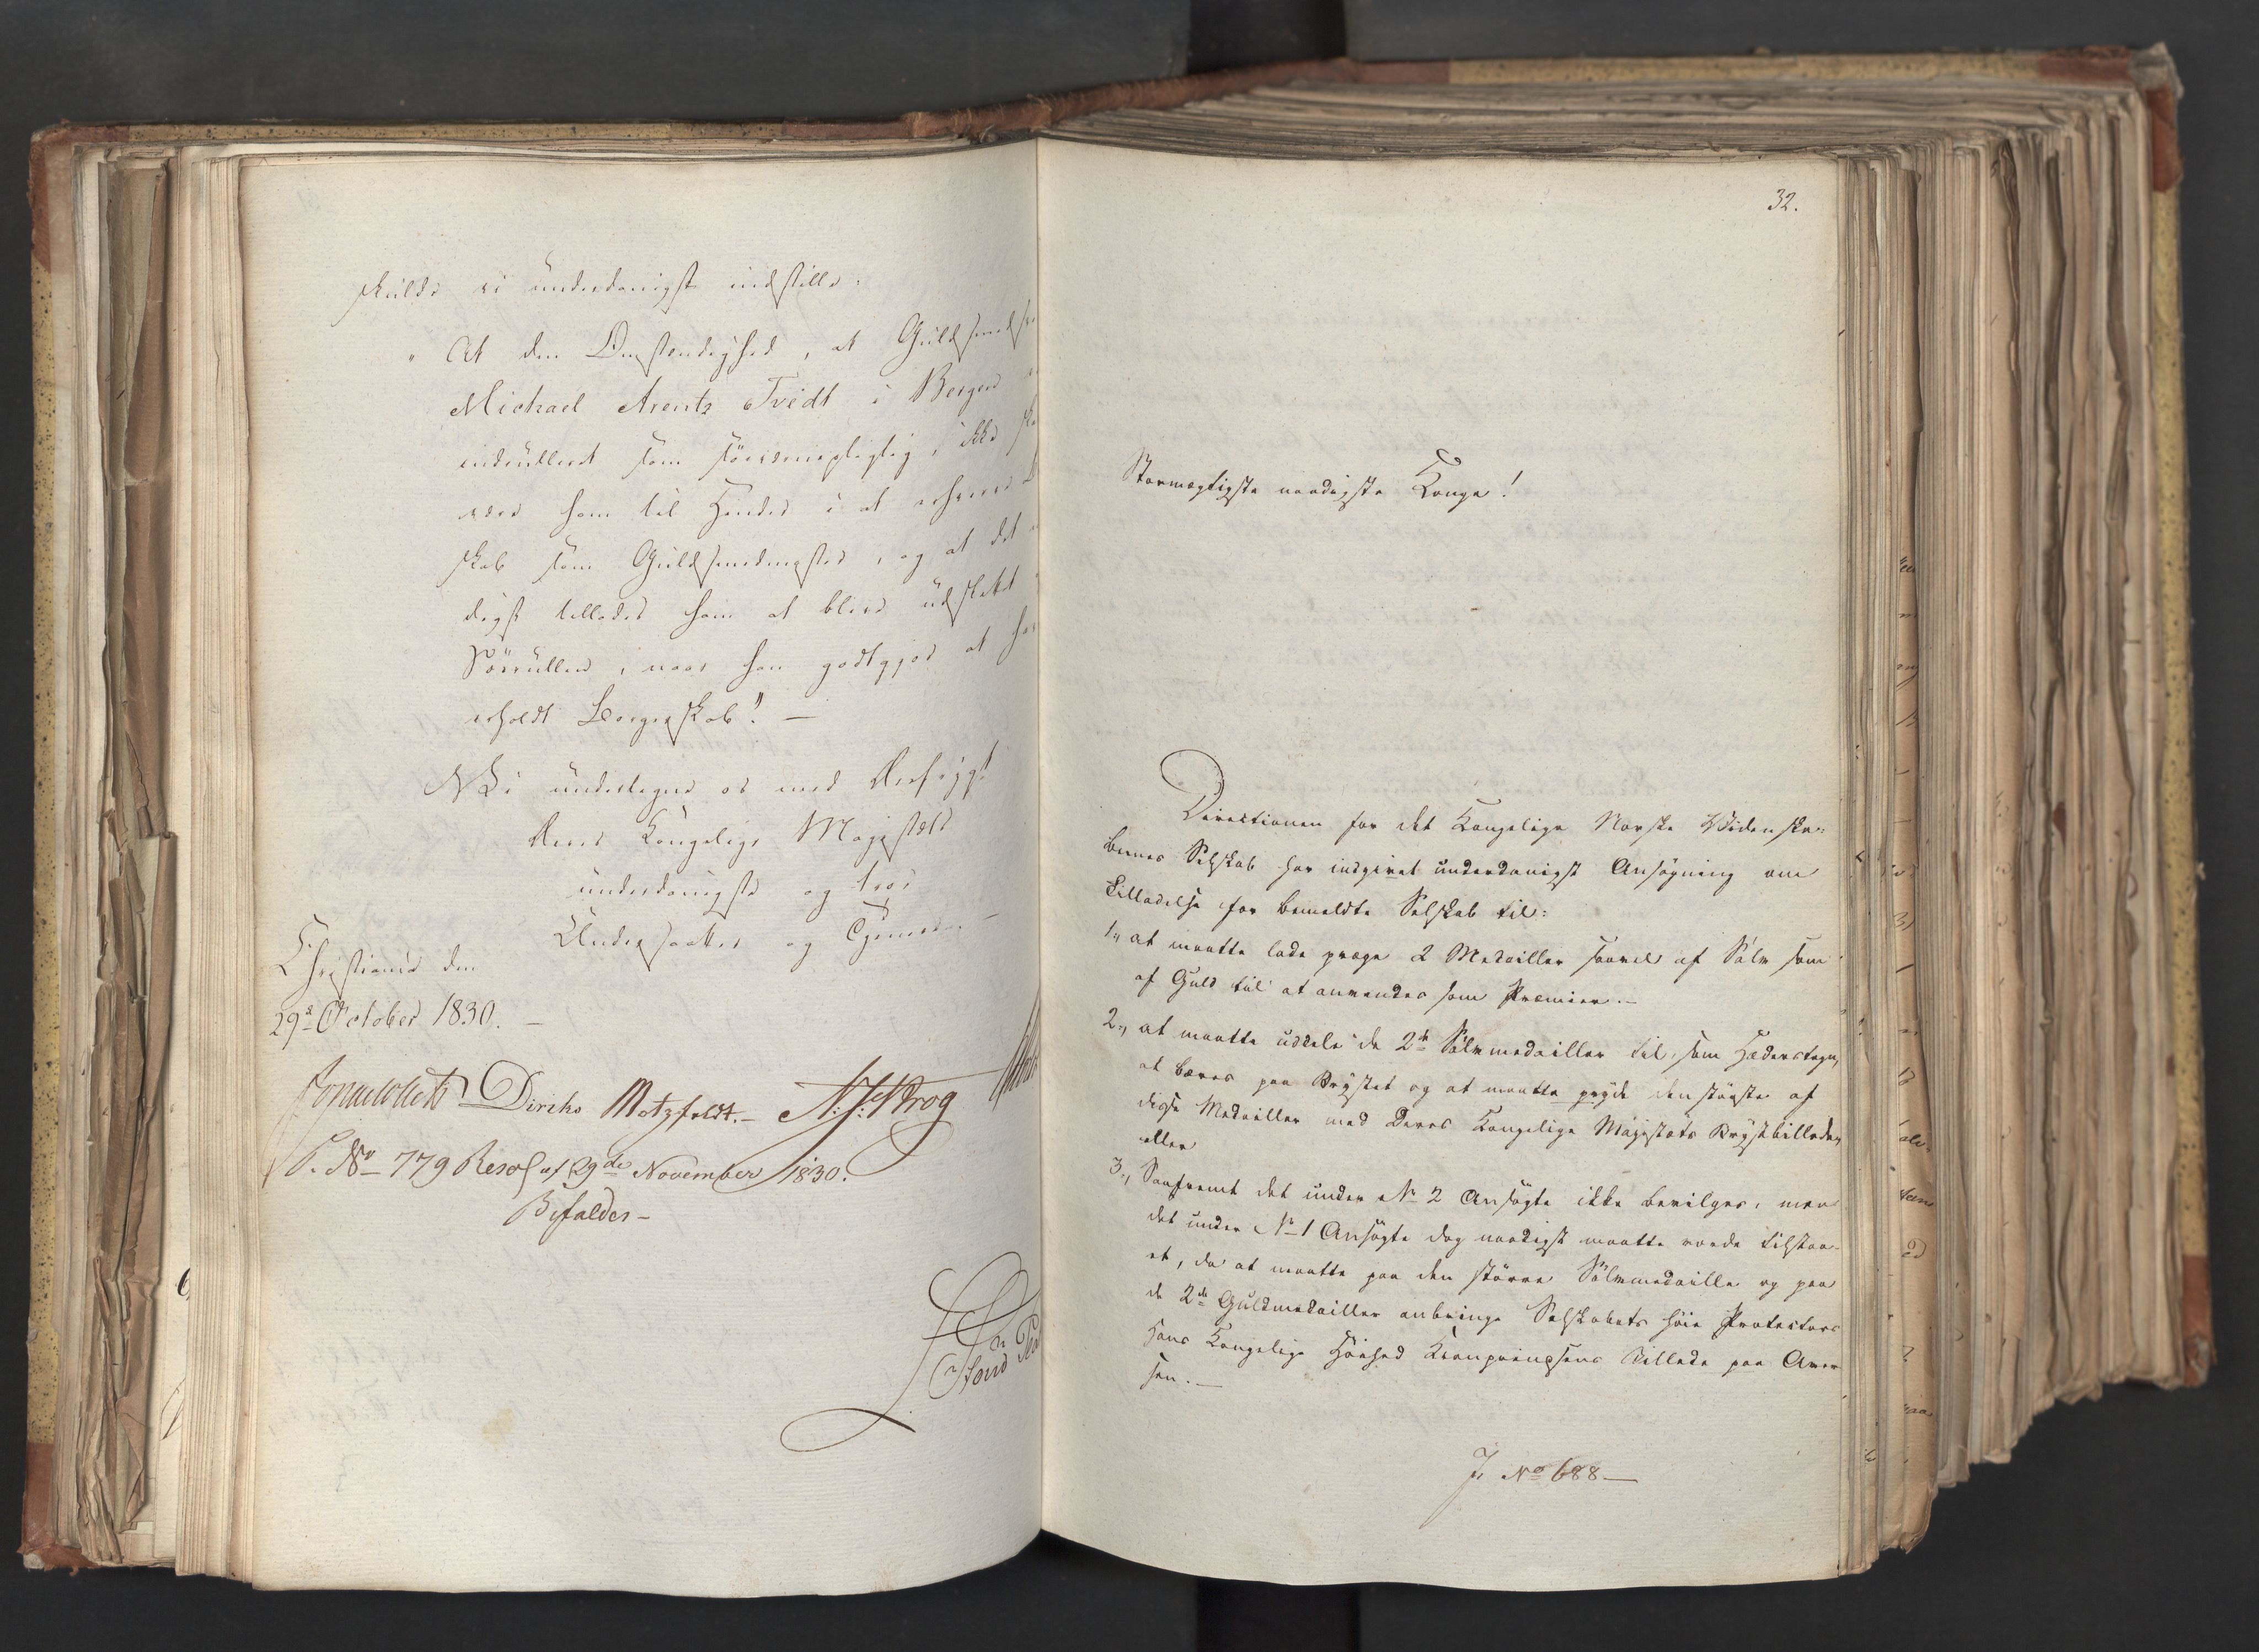 skulde vi underdanigst indstille:
" At den Omstendighed, at Guldsmed
Michael Arentz Tvedt i Bergen
indrulleret som söeværnepligtig, ikke
være ham til Hinder i at erhverve
skab som Guldsmedmester, og at det
digst tillades ham at blive udslettet
Sörrullen, naar han godtgjør at ha
erholdt Borgerskab." —
Vi undertegne os med Ærefrygt
Deres Kongelige Majestæts
underdanigste og troe
Undersaatter og Tjenere
Christiania den
29de October 1830. —
Jonas Collett Diriks Motzfeldt.— N. J. Krog
P. No 779 Resol af 29de November 1830.
Bifaldes —
32.
Stormægtigste naadigste Konge!
Directionen for det Kongelige Norske Videnska-
bernes Selskab har indgivet underdanigst Ansøgning om
Tilladelse for bemeldte Selskab til:
1., at maatte lade præge 2 Medailler saavel af Sölv som
af Guld til at anvendes som Præmier. —
2., at maatte uddele de 2de Sölvmedailler til, som Hæderstegn,
at bæres paa Brystet og at maatte pryde den störste af
disse Medailler med Deres Kongelige Majestæts Brystbillede,
eller
3., Saafremt det under No 2 Ansögte ikke bevilges, men
det under No 1 Ansögte dog naadigst maatte vorde tilstaa-
et, da at maatte paa den större Sölvmedaille og paa
de 2de Guldmedailler anbringe Selskabets höie Protectors
Hans Kongelige Höihed Kronprindsens Billede paa Aver-
sen. —
J. No 688 —